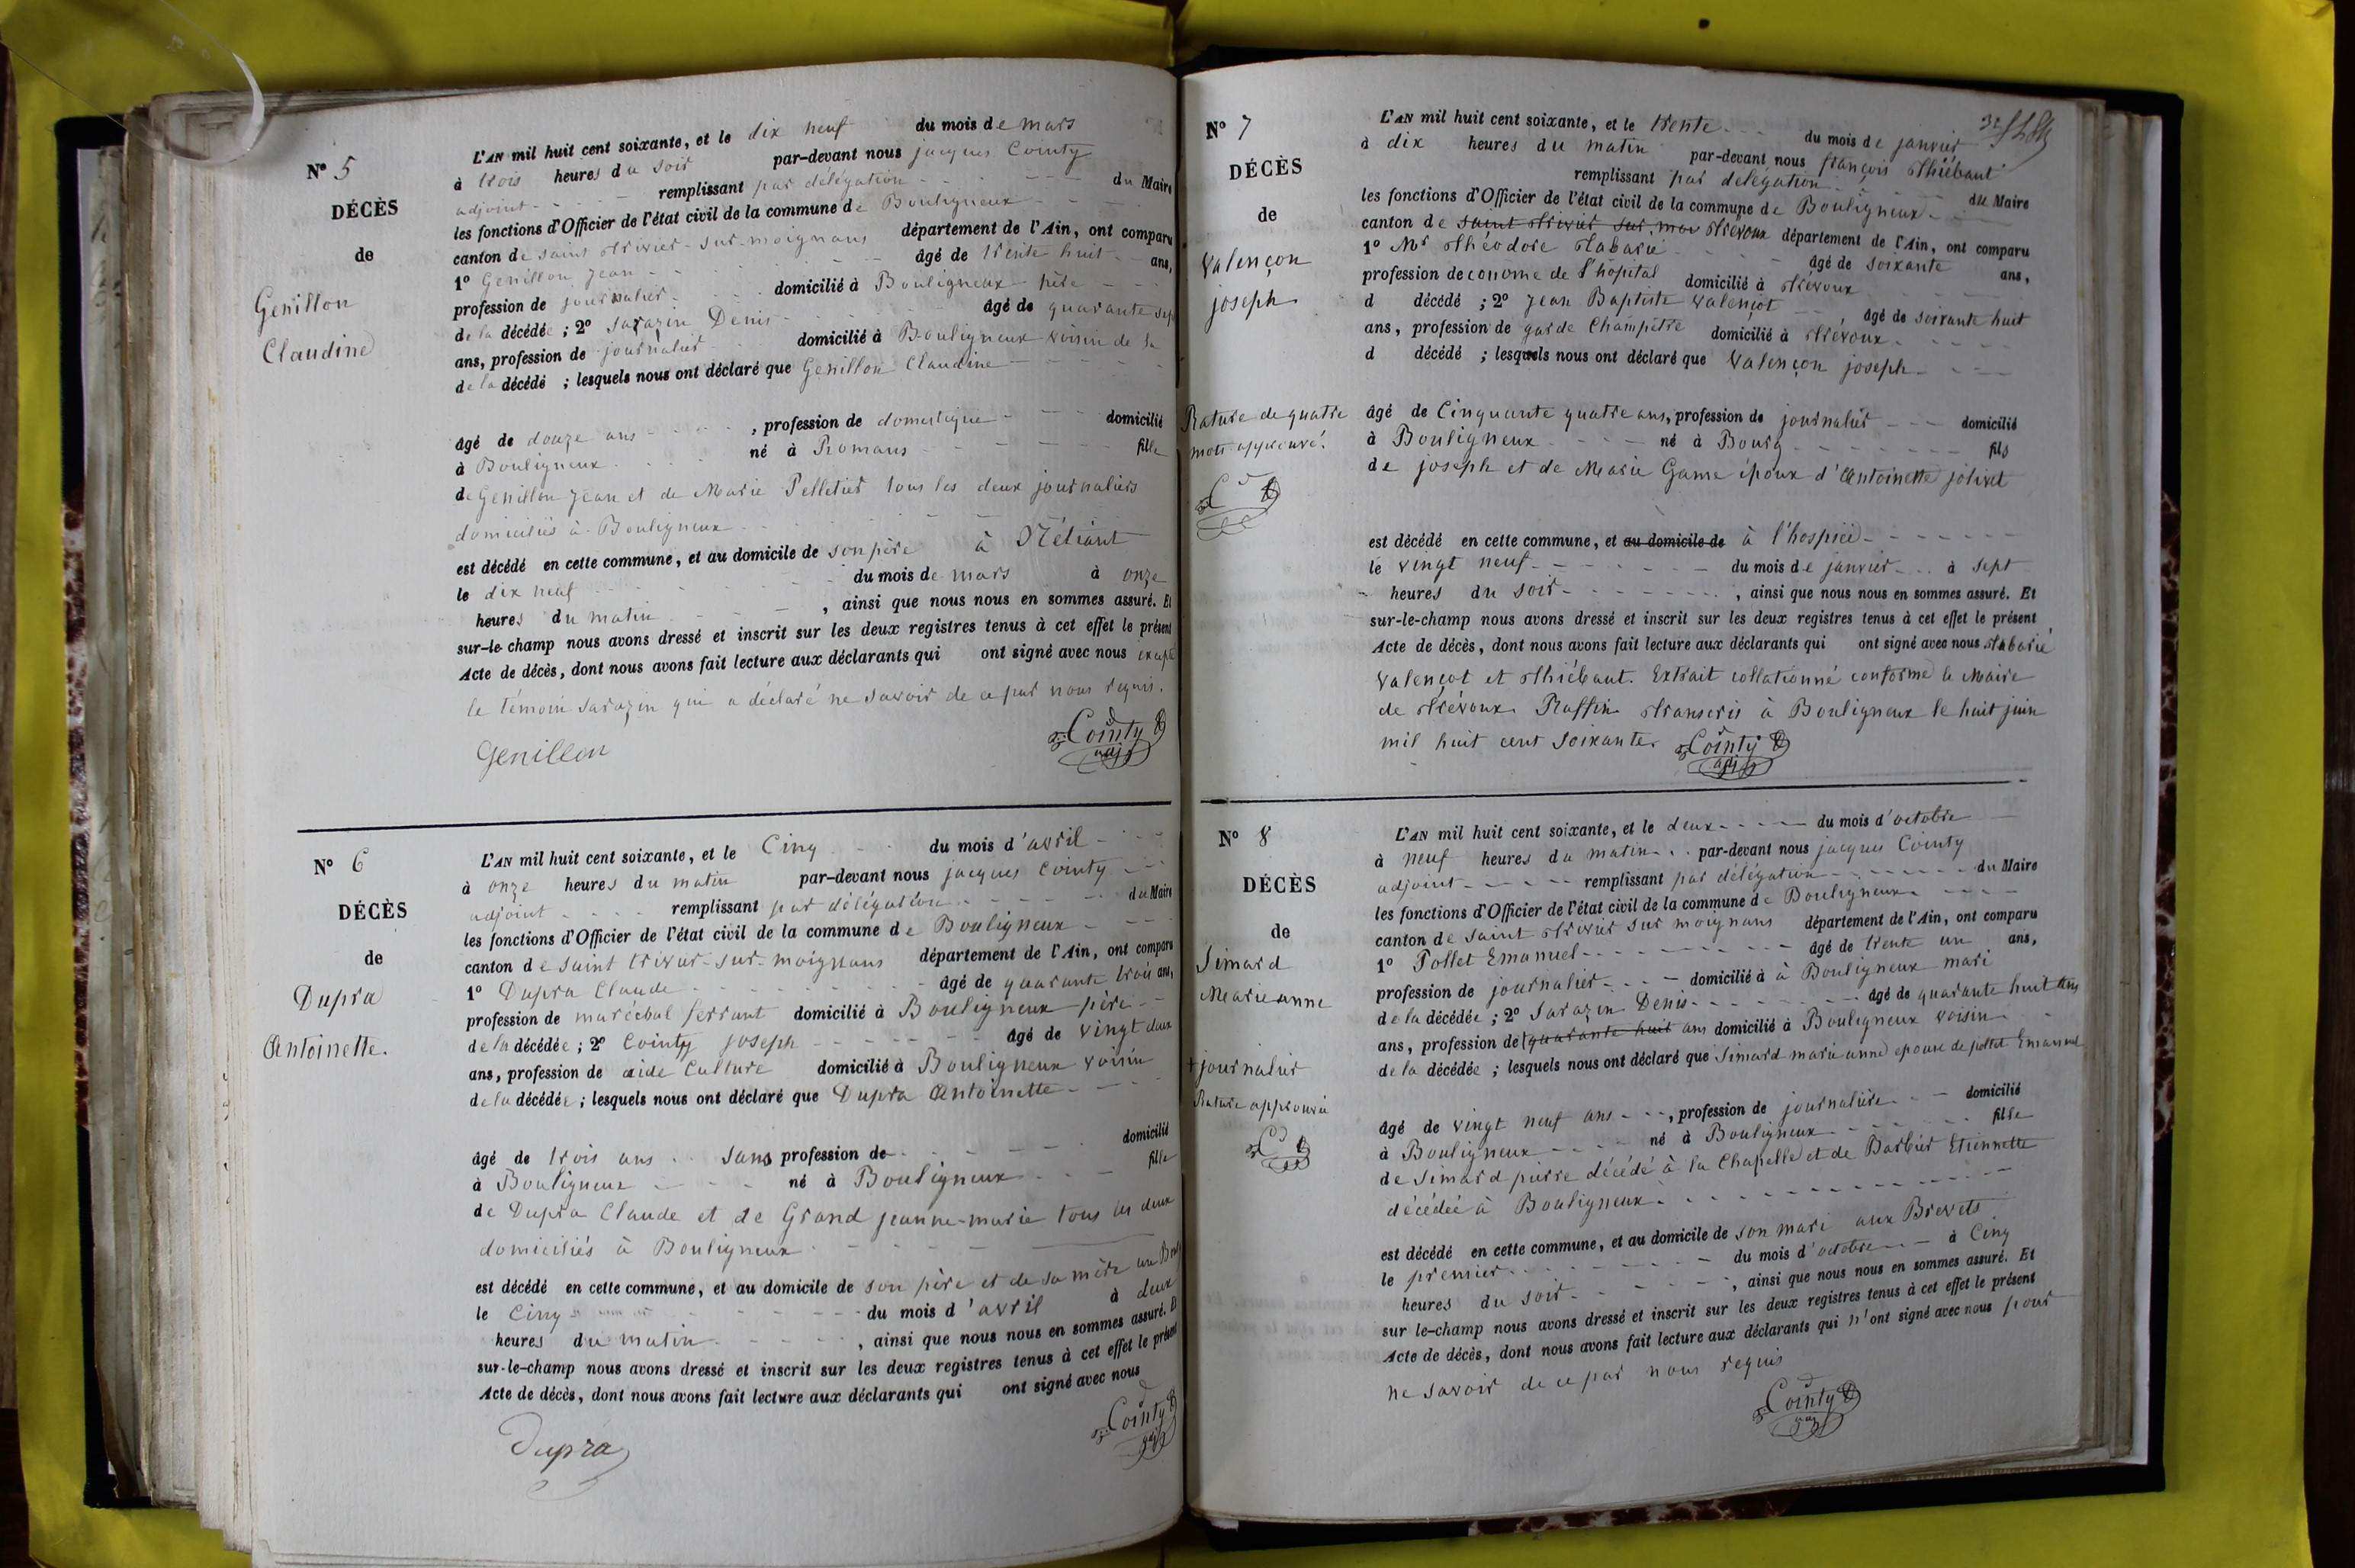 N° 5
DÉCÈS
de
Genillon
Claudine
L'AN mil huit cent soixante, et le dix neuf du mois de mars
à trois heures du soir par-devant nous jacques Cointy
adjoint remplissant par délégation du Maire
les fonctions d'Officier de l'état civil de la commune de Bouligneux
canton de saint trivier-sur-moignans département de l'Ain, ont comparu
1° Genillon Jean âgé de trente huit ans,
profession de journalier domicilié à Bouligneux père
de la décédée ; 2° Sarazin Denis âgé de quarante sept
ans, profession de journalier domicilié à Bouligneux voisin de la
de la décédé ; lesquels nous ont déclaré que Genillon Claudine
âgé de douze ans , profession de domestique domicilié
à Bouligneux né à Romans fille
de Genillon Jean et de Marie Pelletier tous les deux journaliers
domiciliés à Bouligneux
est décédé en cette commune, et au domicile de son père à
le dix neuf du mois de mars à onze
heures du matin , ainsi que nous nous en sommes assuré. Et
sur-le-champ nous avons dressé et inscrit sur les deux registres tenus à cet effet le présent
Acte de décès, dont nous avons fait lecture aux déclarants qui ont signé avec nous excepté
le témoin Sarazin qui a déclaré ne savoir de ce par nous requis.
Genillon
Cointy
adj
N° 6
DÉCÈS
de
Dupra
Antoinette.
L'AN mil huit cent soixante, et le Cinq du mois d'avril
à onze heures du matin par-devant nous jacques Cointy
adjoint remplissant par délégation du Maire
les fonctions d'Officier de l'état civil de la commune de Bouligneux
canton de saint trivier-sur-moignans département de l'Ain, ont comparu
1° Dupra Claude âgé de quarante trois ans,
profession de maréchal ferrant domicilié à Bouligneux père
de la décédée ; 2° Cointy joseph âgé de vingt deux
ans, profession de aide Culture domicilié à Bouligneux voisin
de la décédée ; lesquels nous ont déclaré que Dupra Antoinette
âgé de trois ans sans profession de domicilié
à Bouligneux né à Bouligneux fille
de Dupra Claude et de Grand jeanne-marie tous les deux
domiciliés à Bouligneux
est décédé en cette commune, et au domicile de son père et de sa mère au
le Cinq du mois d'avril à deux
heures du matin , ainsi que nous nous en sommes assuré. Et
sur-le-champ nous avons dressé et inscrit sur les deux registres tenus à cet effet le présent
Acte de décès, dont nous avons fait lecture aux déclarants qui ont signé avec nous
Dupra
Cointy
adj
N° 7
DÉCÈS
de
Valençon
joseph
Rature de quatre
mots approuvé.
L'AN mil huit cent soixante, et le trente du mois de janvier
à dix heures du matin par-devant nous françois Thiébaut
remplissant par délégation du Maire
les fonctions d'Officier de l'état civil de la commune de Bouligneux
canton de saint Trivier sur moi Trévoux département de l'Ain, ont comparu
1° Mr Théodore Tabarié âgé de soixante ans,
profession de conome de l'hôpital domicilié à Trévoux
d décédé ; 2° Jean Baptiste Valençot âgé de soixante huit
ans, profession de garde Champêtre domicilié à Trévoux
d décédé ; lesquels nous ont déclaré que Valençon joseph
âgé de Cinquante quatre ans, profession de journalier domicilié
à Bouligneux né à Bourg fils
de joseph et de Marie Game époux d'Antoinette jolivet
est décédé en cette commune, et au domicile de à l'hospice
le vingt neuf du mois de janvier à sept
heures du soir , ainsi que nous nous en sommes assuré. Et
sur-le-champ nous avons dressé et inscrit sur les deux registres tenus à cet effet le présent
Acte de décès, dont nous avons fait lecture aux déclarants qui ont signé avec nous Tabarié
Valençot et Thiébaut. Extrait collationné conforme le Maire
de Trévoux. Raffin. Transcris à Bouligneux le huit juin
mil huit cent soixante. Cointy
adj
N° 8
DÉCÈS
de
Simard
Marie anne
+ journalier
Rature approuvée
L'AN mil huit cent soixante, et le deux du mois d'octobre
à neuf heures du matin par-devant nous jacques Cointy
adjoint remplissant par délégation du Maire
les fonctions d'Officier de l'état civil de la commune de Bouligneux
canton de saint Trivier sur moignans département de l'Ain, ont comparu
1° Pollet Emanuel âgé de trente un ans,
profession de journalier domicilié à à Bouligneux mari
de la décédée ; 2° Sarazin Denis âgé de quarante huit ans
ans, profession de quarante huit ans domicilié à Bouligneux voisin
de la décédée ; lesquels nous ont déclaré que Simard marie anne epouse de pollet Emanuel
âgé de vingt neuf ans , profession de journalière domicilié
à Bouligneux né à Bouligneux fille
de Simard pierre décédé à la Chapelle et de Barbier Etiennette
décédée à Bouligneux
est décédé en cette commune, et au domicile de son mari aux Brevets
le premier du mois d'octobre à Cinq
heures du soir , ainsi que nous nous en sommes assuré. Et
sur le-champ nous avons dressé et inscrit sur les deux registres tenus à cet effet le présent
Acte de décès, dont nous avons fait lecture aux déclarants qui n'ont signé avec nous pour
ne savoir de ce par nous requis
Cointy
adj